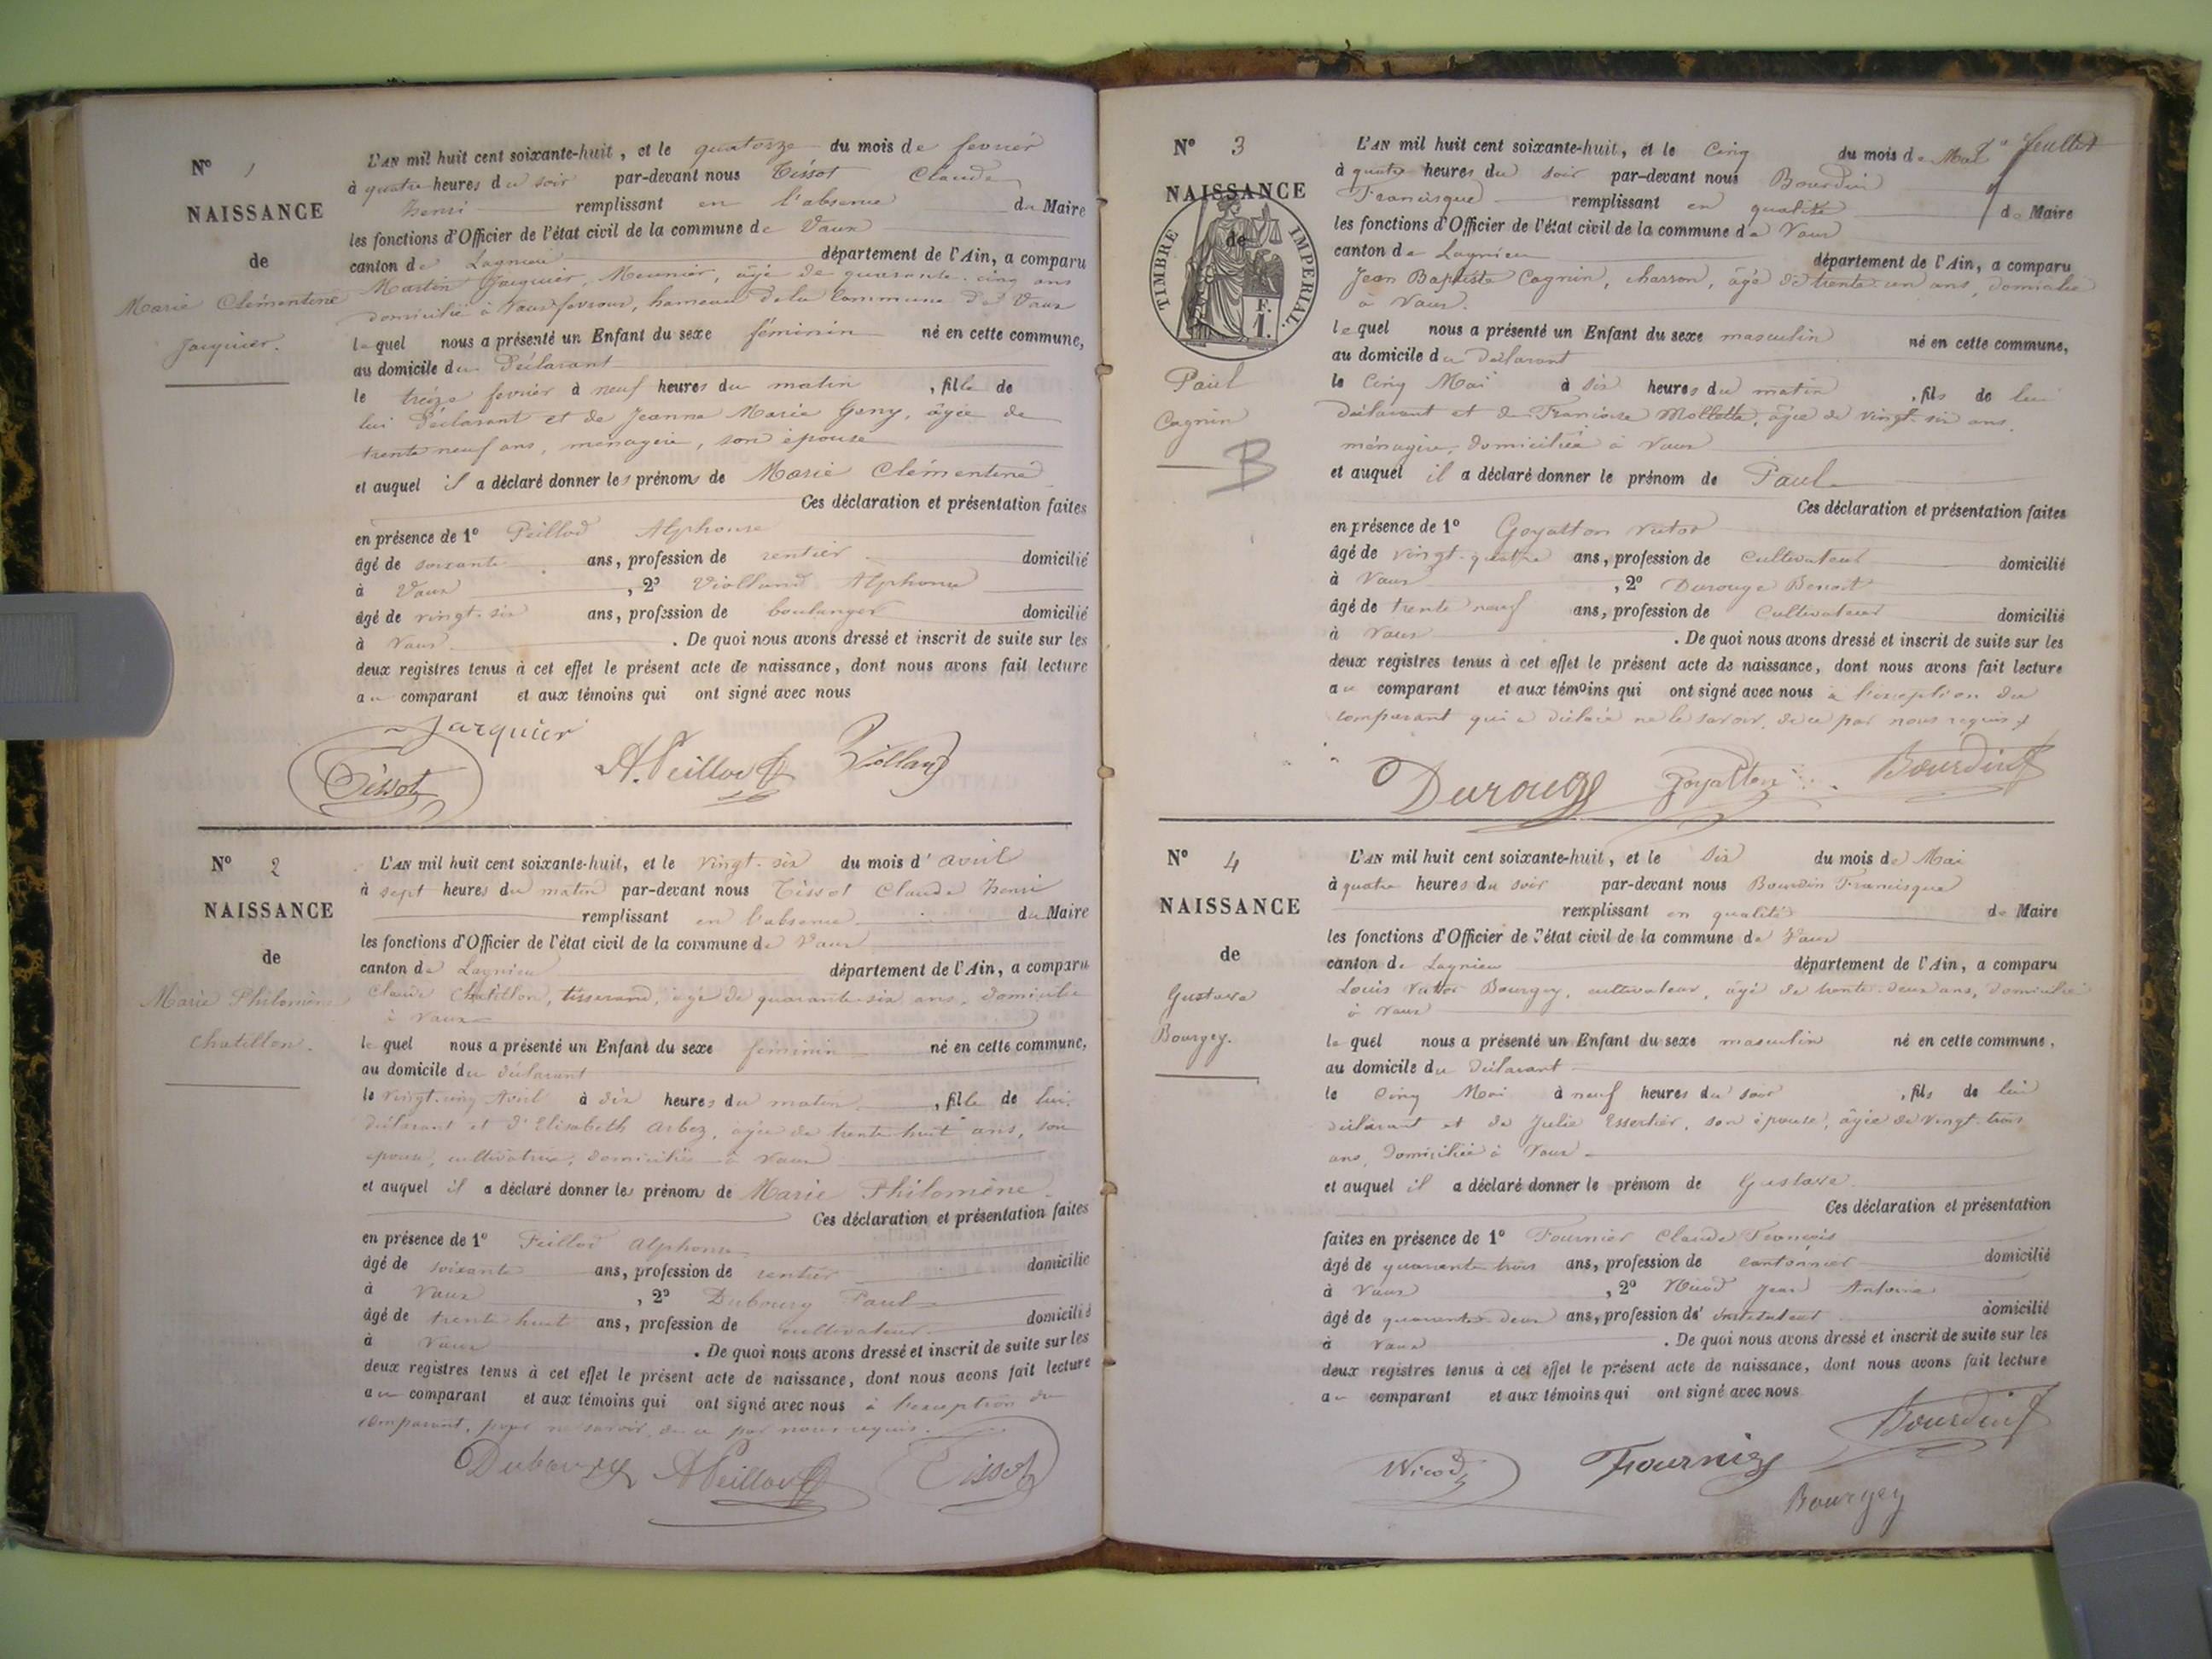 N° 1
NAISSANCE
de
Marie Clémentine
Jacquier.
L'AN mil huit cent soixante-huit, et le quatorze du mois de fevrier
à quatre heures du soir par-devant nous Tissot Claude
henri remplissant en l'absence du Maire
les fonctions d'Officier de l'état civil de la commune de Vaux
canton de Lagnieu département de l'Ain, a comparu
Martin Jacquier, Meunier, âgé de quarante-cinq ans
domicilié à Vaux fevroux, hameau de la Commune de Vaux
lequel nous a présenté un Enfant du sexe féminin né en cette commune,
au domicile du Déclarant
le treize fevrier à neuf heures du matin, fille de
lui Déclarant et de Jeanne Marie Geny, âgée de
trente neuf ans, ménagère, son épouse
et auquel il a déclaré donner les prénoms de Marie Clémentine
Ces déclaration et présentation faites
en présence de 1° Peillod Alphonse
âgé de soixante ans, profession de rentier domicilié
à Vaux, 2° Violland Alphonse
âgé de vingt-six ans, profession de boulanger domicilié
à Vaux. De quoi nous avons dressé et inscrit de suite sur les
deux registres tenus à cet effet le présent acte de naissance, dont nous avons fait lecture
au comparant et aux témoins qui ont signé avec nous
Jacquier
Tissot A. Peillod Violland
N° 2
NAISSANCE
de
Marie Philomène
Chatillon.
L'AN mil huit cent soixante-huit, et le vingt-six du mois d'avril
à sept heures du matin par-devant nous Tissot Claude henri
remplissant en l'absence du Maire
les fonctions d'Officier de l'état civil de la commune de Vaux
canton de Lagnieu département de l'Ain, a comparu
Claude Chatillon, tisserand, âgé de quarante-six ans, domicilié
à Vaux
lequel nous a présenté un Enfant du sexe féminin né en cette commune,
au domicile du déclarant
le vingt-cinq Avril à dix heures du matin, fille de lui
déclarant et d'Elisabeth Arbez, âgée de trente huit ans, son
épouse, cultivatrice, domiciliée à Vaux
et auquel il a déclaré donner les prénoms de Marie Philomène
Ces déclaration et présentation faites
en présence de 1° Peillod Alphonse
âgé de soixante ans, profession de rentier domicilié
à Vaux, 2° Dubourg Paul
âgé de trente huit ans, profession de cultivateur domicilié
à Vaux. De quoi nous avons dressé et inscrit de suite sur les
deux registres tenus à cet effet le présent acte de naissance, dont nous avons fait lecture
au comparant et aux témoins qui ont signé avec nous à l'exception du
comparant, pour ne savoir, de ce par nous requis.
Dubourg A Peillod Tissot
N° 3
NAISSANCE
de
TIMBRE IMPERIAL.
1. F.
Paul
Cagnin
B
L'AN mil huit cent soixante-huit, et le Cinq du mois de Mai
à quatre heures du soir par-devant nous Bourdin
Francisque remplissant en qualité de Maire
les fonctions d'Officier de l'état civil de la commune de Vaux
canton de Lagnieu département de l'Ain, a comparu
Jean Baptiste Cagnin, charron, âgé de trente-un ans, domicilié
à Vaux.
lequel nous a présenté un Enfant du sexe masculin né en cette commune,
au domicile du déclarant
le Cinq Mai à six heures du matin, fils de lui
déclarant et de Françoise Mollette, âgée de vingt-six ans,
ménagère, domiciliée à Vaux
et auquel il a déclaré donner le prénom de Paul
Ces déclaration et présentation faites
en présence de 1° Goyatton Victor
âgé de vingt-quatre ans, profession de Cultivateur domicilié
à Vaux, 2° Durouge Benoit
âgé de trente neuf ans, profession de Cultivateur domicilié
à Vaux. De quoi nous avons dressé et inscrit de suite sur les
deux registres tenus à cet effet le présent acte de naissance, dont nous avons fait lecture
au comparant et aux témoins qui ont signé avec nous à l'exception du
comparant qui a déclaré ne le savoir, de ce par nous requis
Durouge Goyatton Bourdin
N° 4
NAISSANCE
de
Gustave
Bourgey.
L'AN mil huit cent soixante-huit, et le Six du mois de Mai
à quatre heures du soir par-devant nous Bourdin Francisque
remplissant en qualité de Maire
les fonctions d'Officier de l'état civil de la commune de Vaux
canton de Lagnieu département de l'Ain, a comparu
Louis Victor Bourgey, cultivateur, âgé de trente-deux ans, domicilié
à Vaux
lequel nous a présenté un Enfant du sexe masculin né en cette commune,
au domicile du déclarant
le Cinq Mai à neuf heures du soir, fils de lui
déclarant et de Julie Essertier, son épouse, âgée de vingt-trois
ans, domiciliée à Vaux
et auquel il a déclaré donner le prénom de Gustave.
Ces déclaration et présentation
faites en présence de 1° Fournier Claude François
âgé de quarante trois ans, profession de cantonnier domicilié
à Vaux, 2° Nicod Jean Antoine
âgé de quarante-deux ans, profession d'instituteur domicilié
à Vaux. De quoi nous avons dressé et inscrit de suite sur les
deux registres tenus à cet effet le présent acte de naissance, dont nous avons fait lecture
au comparant et aux témoins qui ont signé avec nous
Bourdin
Nicod Fournier
Bourgey